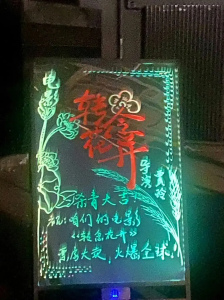 电影
转念花开
导演 黄玲
杀青大吉
祝：咱们的电影
《转念花开》
票房大卖，火爆全球！